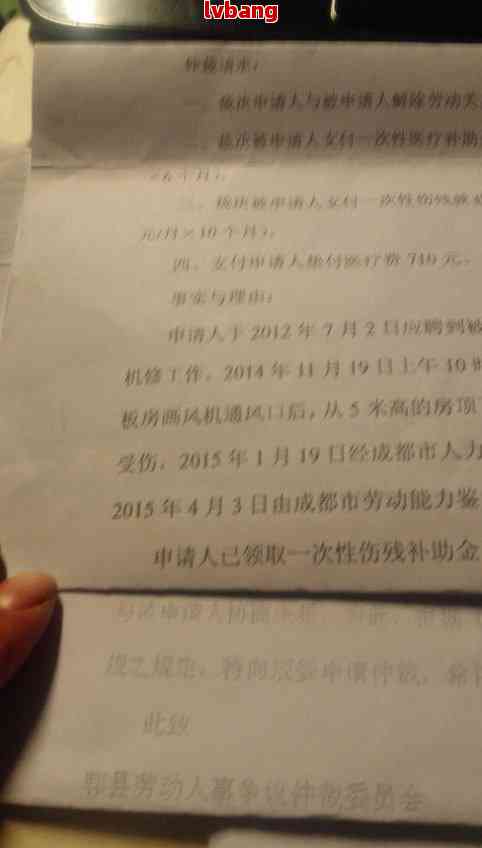 lvbang
仲裁请求：
一、裁决申请人与被申请人解除劳动关
二、裁决被申请人支付一次性医疗补助
×6个月）；
三、裁决被申请人支付一次性伤残就业
元/月×10个月）；
四、支付申请人垫付医疗费740元。
事实与理由：
申请人于2012年7月2日应聘到被
机修工作。2014年11月19日上午10时
板房画风机通风口后，从5米高的房顶
受伤。2015年1月19日经成都市人力
2015年4月3日由成都市劳动能力鉴
申请人已领取一次性伤残补助金
与被申请人协商
规之规定，特向贵委申请仲裁，
此致
郫县劳动人事争议仲裁委员会